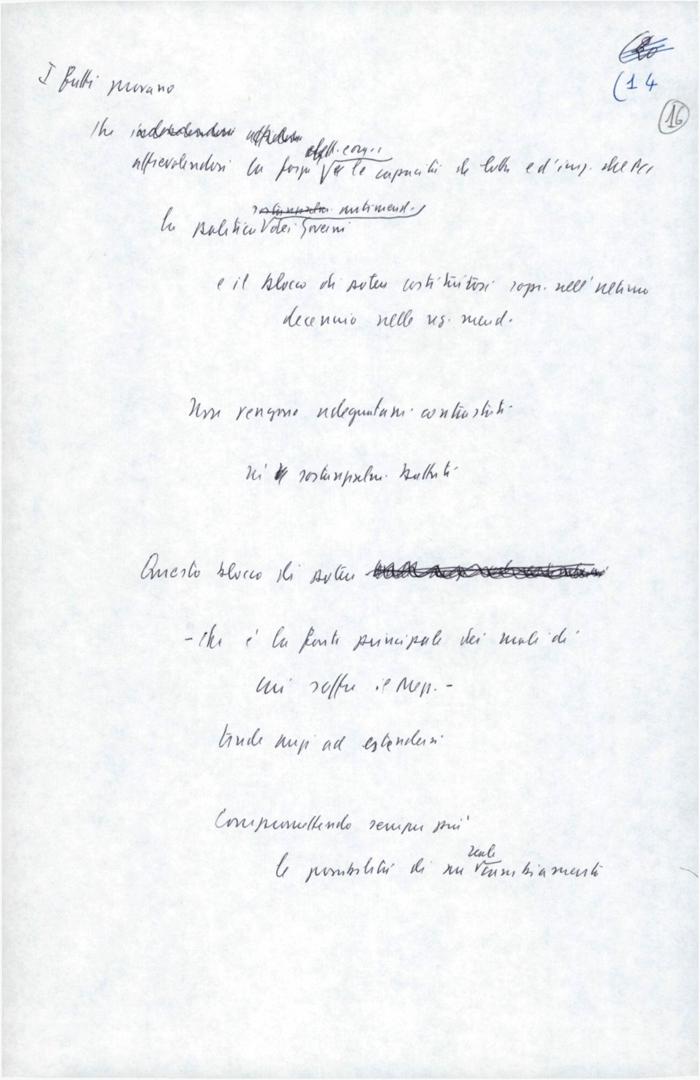 (14
16
I fatti provano
che
affievolendosi la forza e le capacità di lotta ed'iniz. del Pci
la politica antimerid. dei Governi
e il blocco di potere costituitosi sopr. nell'ultimo
decennio nelle reg. merid.
Non vengono adeguatam. contrastati
nè sostanzialm. battuti
Questo blocco di potere
- che è la fonte principale dei mali di
cui soffre il Mezz. -
tende anzi ad estendersi
Compromettendo sempre più
le possibilità di un reale cambiamento